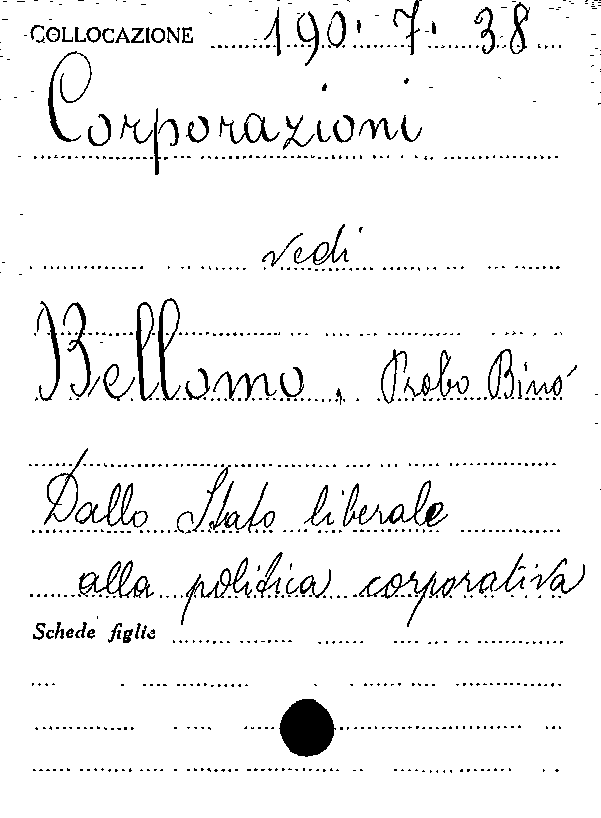 COLLOCAZIONE 190. 7. 38
Corporazioni
vedi
Bellomo, Probo Bino
Dallo Stato liberale
alla politica corporativa
Schede figlie